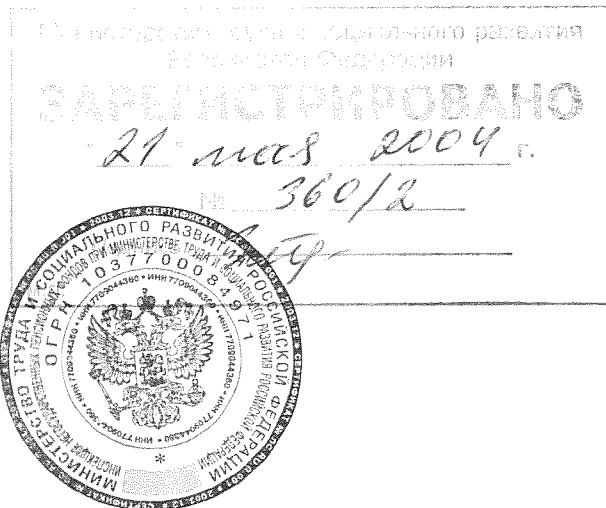 социального развития
Российской Федерации
ЗАРЕГИСТРИРОВАНО
21 мая 2004 г.
№ 360/2
МИНИСТЕРСТВО ТРУДА И СОЦИАЛЬНОГО РАЗВИТИЯ РОССИЙСКОЙ ФЕДЕРАЦИИ
ИНСПЕКЦИЯ НЕГОСУДАРСТВЕННЫХ ПЕНСИОННЫХ ФОНДОВ ПРИ МИНИСТЕРСТВЕ ТРУДА И СОЦИАЛЬНОГО РАЗВИТИЯ РОССИЙСКОЙ ФЕДЕРАЦИИ
ОГРН 1037700084971
* ИНН 7709044360 * ИНН 7709044360 * ИНН 7709044360 * ИНН 7709044360